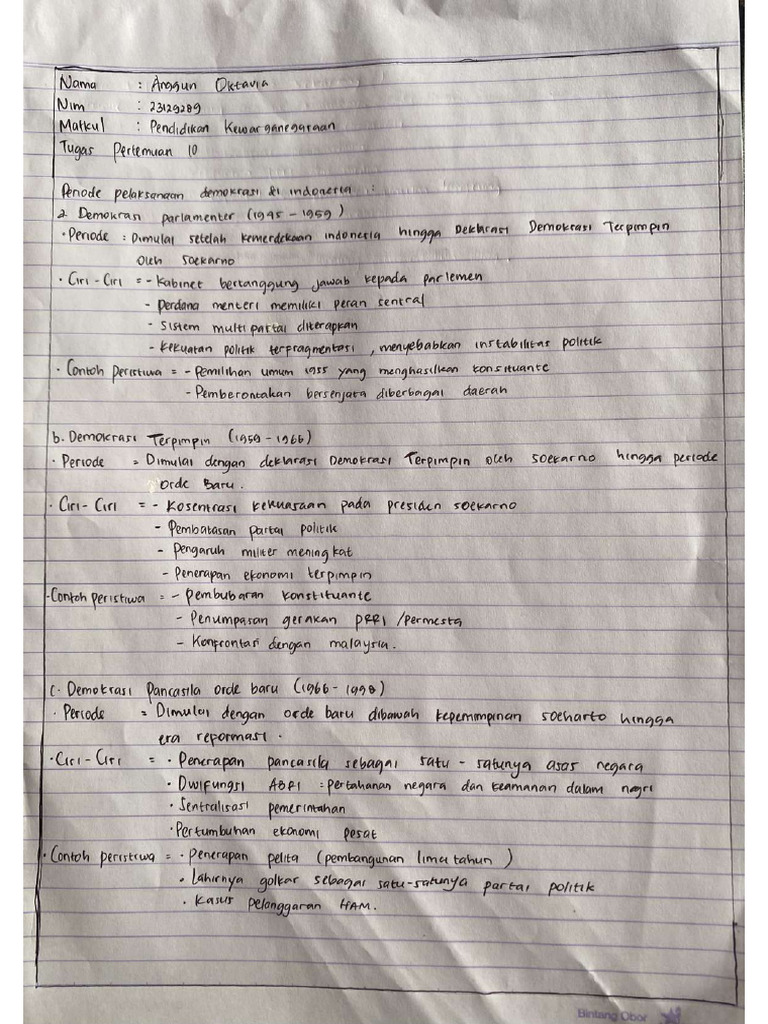 Nama : Anggun Oktavia
Nim : 23129289
Matkul : Pendidikan Kewarganegaraan
Tugas Pertemuan 10
Periode pelaksanaan demokrasi di indonesia :
a. Demokrasi parlamenter (1945 - 1959)
• Periode : Dimulai setelah kemerdekaan indonesia hingga Deklarasi Demokrasi Terpimpin
oleh Soekarno
• Ciri - Ciri = - Kabinet bertanggung jawab kepada parlemen
- Perdana menteri memiliki peran sentral
- Sistem multi partai diterapkan
- Kekuatan politik terpragmentasi, menyebabkan instabilitas politik
• Contoh peristiwa = - Pemilihan umum 1955 yang menghasilkan konsituante
- Pemberontakan bersenjata diberbagai daerah
b. Demokrasi Terpimpin (1959 - 1966)
• Periode = Dimulai dengan deklarasi Demokrasi Terpimpin oleh soekarno hingga periode
Orde Baru.
• Ciri - Ciri = - Kosentrasi kekuasaan pada presiden soekarno
- Pembatasan partai politik
- Pengaruh militer meningkat
- Penerapan ekonomi terpimpin
• Contoh peristiwa = - Pembubaran konstituante
- Penumpasan gerakan PRRI / Permesta
- Konfrontasi dengan malaysia.
c. Demokrasi Pancasila orde baru (1966 - 1998)
• Periode = Dimulai dengan orde baru dibawah kepemimpinan soeharto hingga
era reformasi.
• Ciri - Ciri = • Penerapan pancasila sebagai satu - satunya asas negara
• Dwifungsi ABRI : pertahanan negara dan keamanan dalam negri
• Sentralisasi pemerintahan
• Pertumbuhan ekonomi pesat
• Contoh peristiwa = • Penerapan pelita (pembangunan lima tahun)
• Lahirnya golkar sebagai satu-satunya partai politik
• Kasus pelanggaran HAM.
Bintang Obor